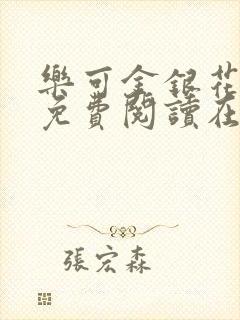 樂可金銀花
免費閱讀在
張宏森